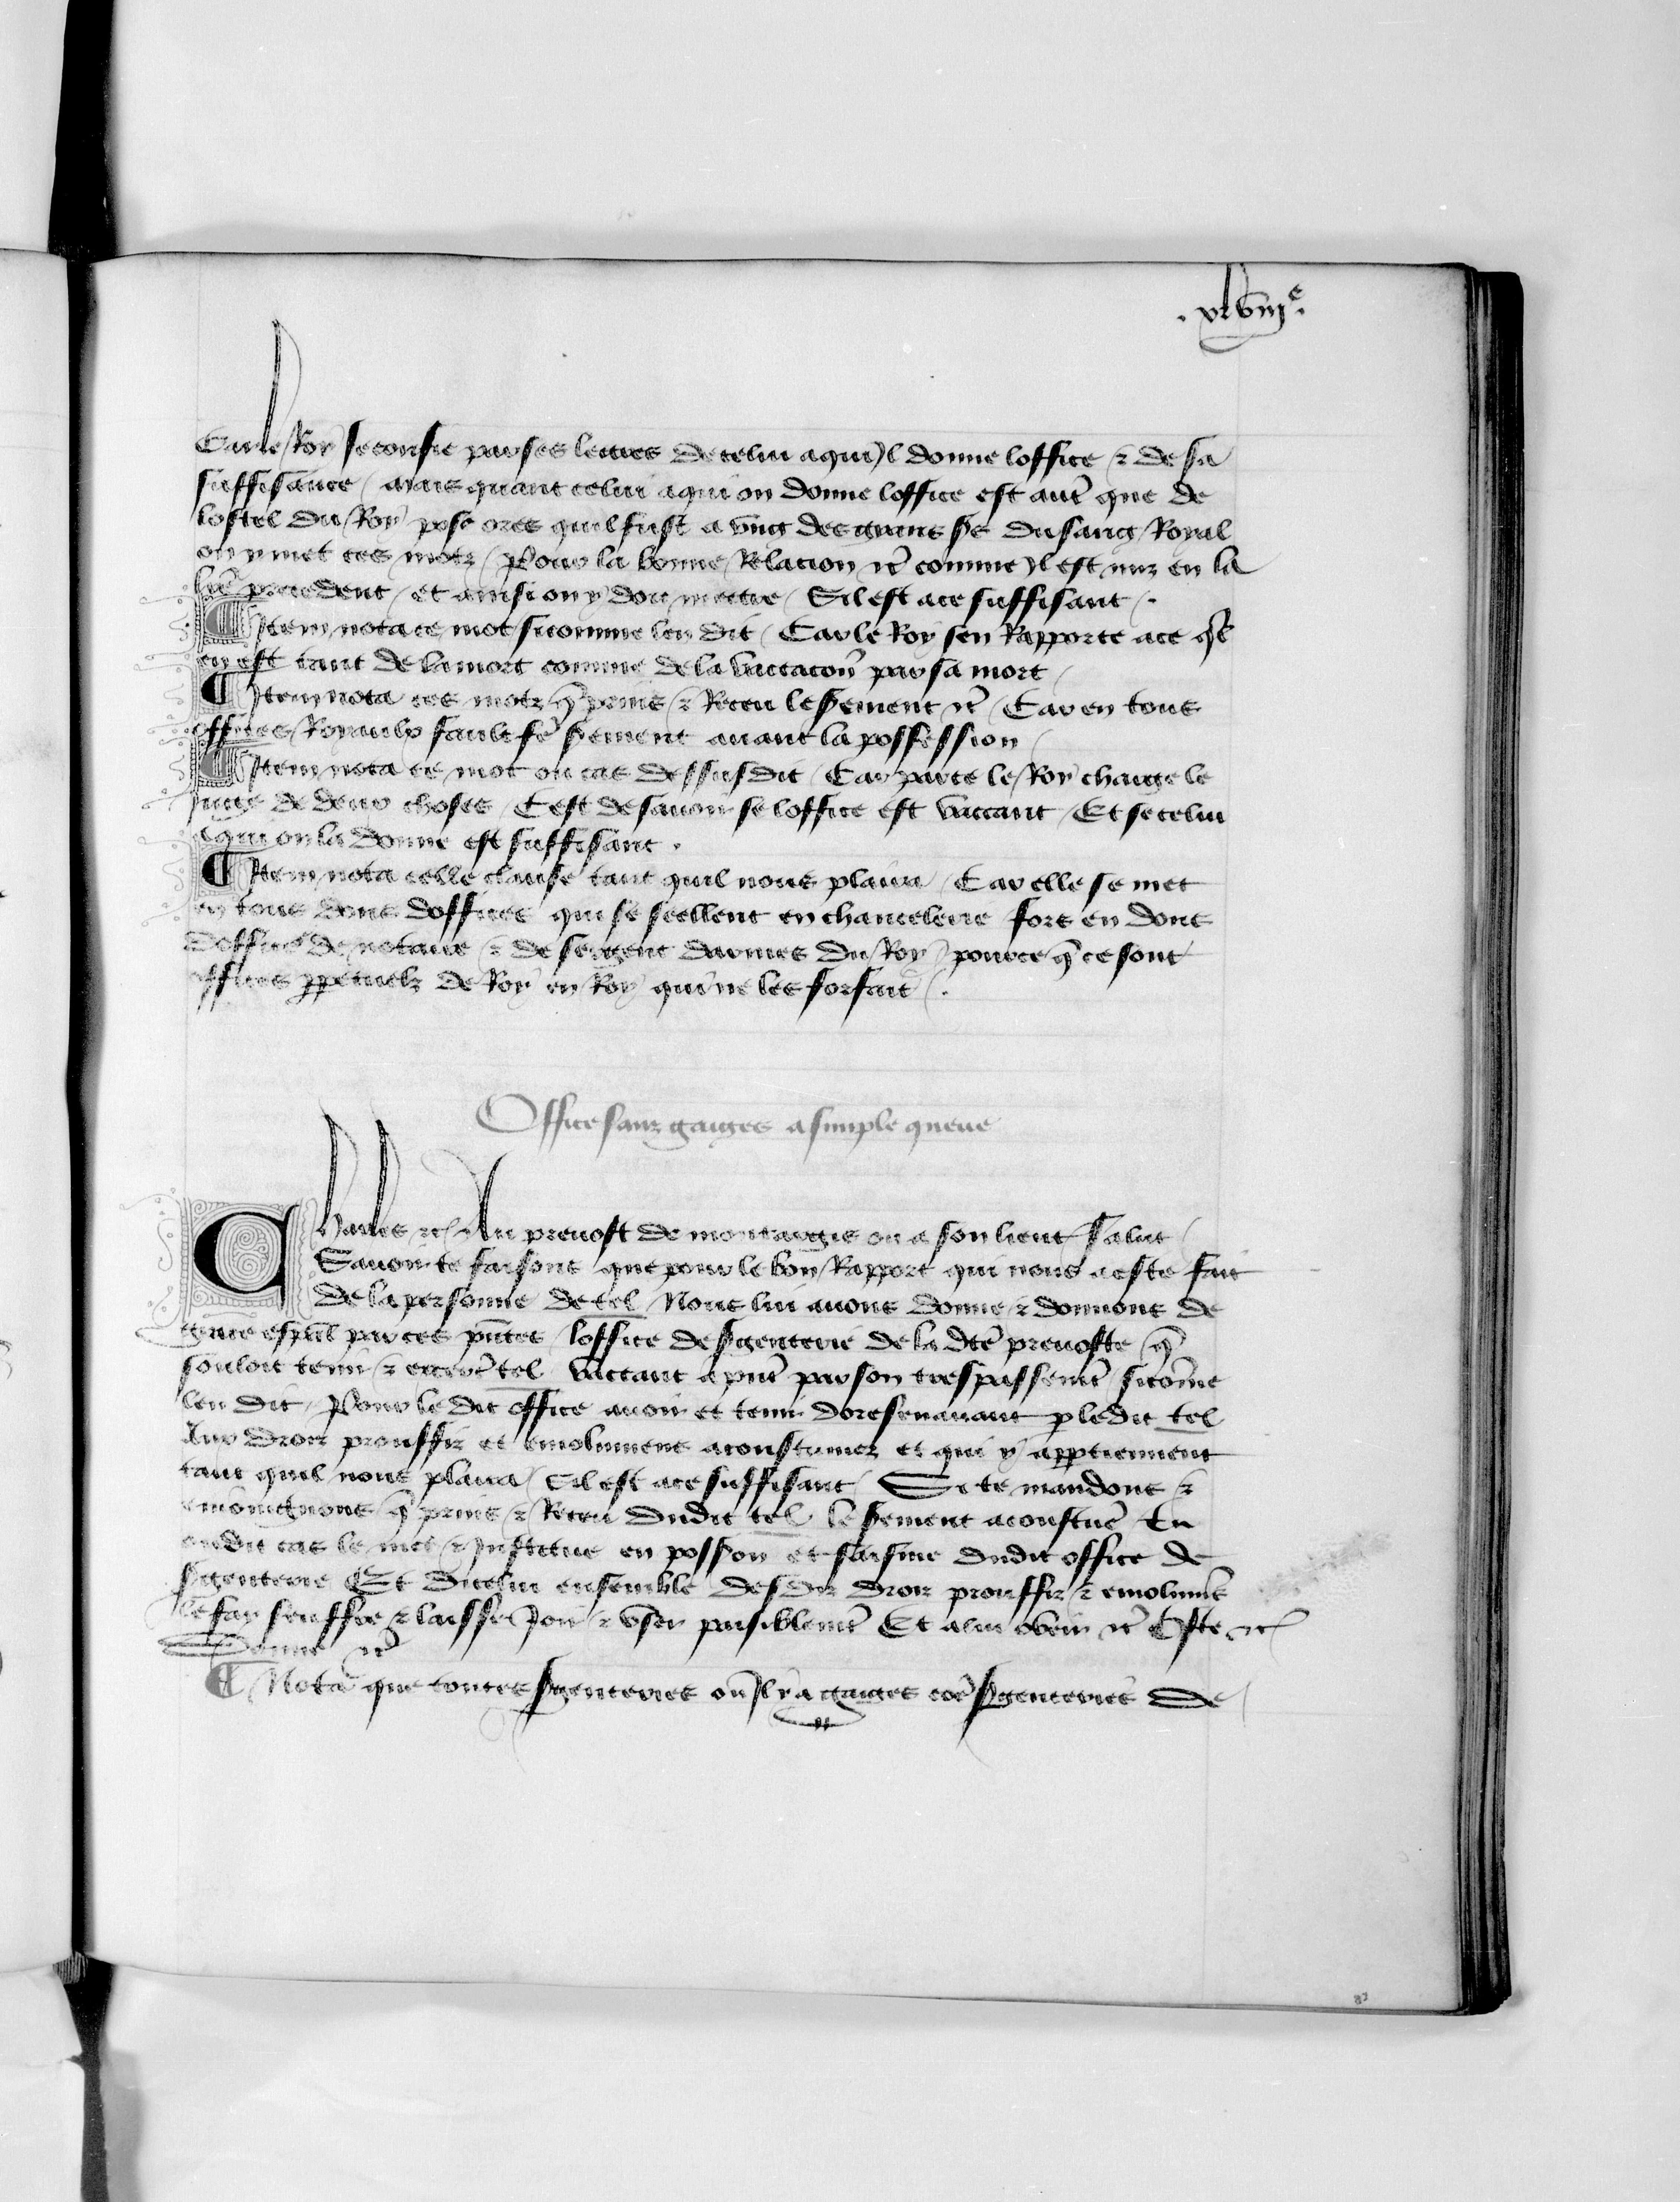 .xlviiie.
Car le Roy se confie par ses lettres de celui a qui Jl donne loffice & de sa
suffisance / mais quant celui a qui on donne loffice est autr̃ que de
lostel du Roy pose ores quil fust a vng des grans ss̃ du sang Royal
on y met ces motz / Pour la bonne Relacion &c̃ comme Jl est mis en la
lr̃e precedent / et ainsi on y doit mettre / Sil est a ce suffisant / .
¶ Jtem nota ce mot si comme len dit / Car le Roy sen Rapporte a ce q̃l
en est tant de la mort comme de la vaccacoñ par sa mort /
¶ Jtem nota ces motz q̃ prins & Receu le s̃ement &c̃ / Car en tous
offices Royaulx fault fẽ s̃ement auant la possession /
¶ Jtem nota ce mot ou cas dessusdit / Car par ce le Roy charge le
juge de deux choses / Cest de sauoir se loffice est vaccant / Et se celui
a qui on la donne est suffisant .
¶ Jtem nota celle clause tant quil nous plaira / Car elle se met
en tous dons doffices qui se seellent en chancelerie fors en dons
doffices de notaire & de sergent darmes du Roy / pource q̃ ce sont
offices ꝑpetuelz de Roy en Roy qui ne les forfait / .
Office sanz gaiges a simple queue
Charles &c̃ Au preuost de montargis ou a son lieut̃ Salut /
Sauoir te faisons que pour le bon Rapport qui nous a este fait
de la personne de tel / Nous lui auons donne & donnons de
grace esp̃al par ces pñtes / loffice de s̃genterie de la dc̃te preuoste q̃
souloit tenir & excercẽ tel vaccant a pñt par son trespassemt̃ si com̃e
len dit / Pour le dit office auoir et tenir doresenauant ꝑ ledit tel
Aux droiz prouffiz et emolumens acoustumez et qui y appꝑtiennent
tant quil nous plaira / Sil est a ce suffisant / Si te mandons &
commectons q̃ prins & Receu dudit tel le s̃ement acoustumẽ Tu
oudit cas le met & Jnstitue en possion̄ et saisine dudit office de
s̃genterie Et dicelui ensemble desdiz droiz prouffiz & emolumẽs
le fay seuffre & laisse Joir & vser paisiblemt̃ Et a lui obeir &c̃ Oste &c̃
Donne &c̃
¶ Nota que toutes s̃genteries ou Jl y a gaiges coẽ s̃genteries de
82